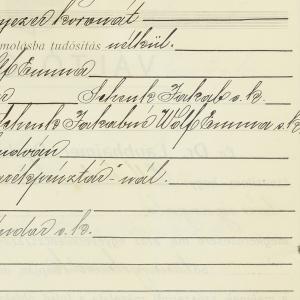 nyezer koronát
molásba tudósítás nélkül.
lf Emma
Schenk Jakab s. k.
Schenk Jakabné Wolf Emma s. k.
Ludván
arékpénztár"-nál.
ándor s. k.